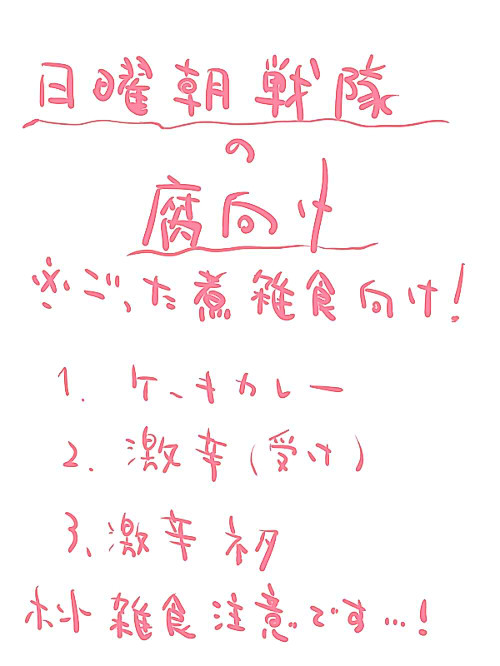 日曜朝戦隊
の
腐向け
※ごった煮雑食向け!
1. ケーキカレー
2. 激辛(受け)
3、激辛ネタ
ホント雑食注意です…!